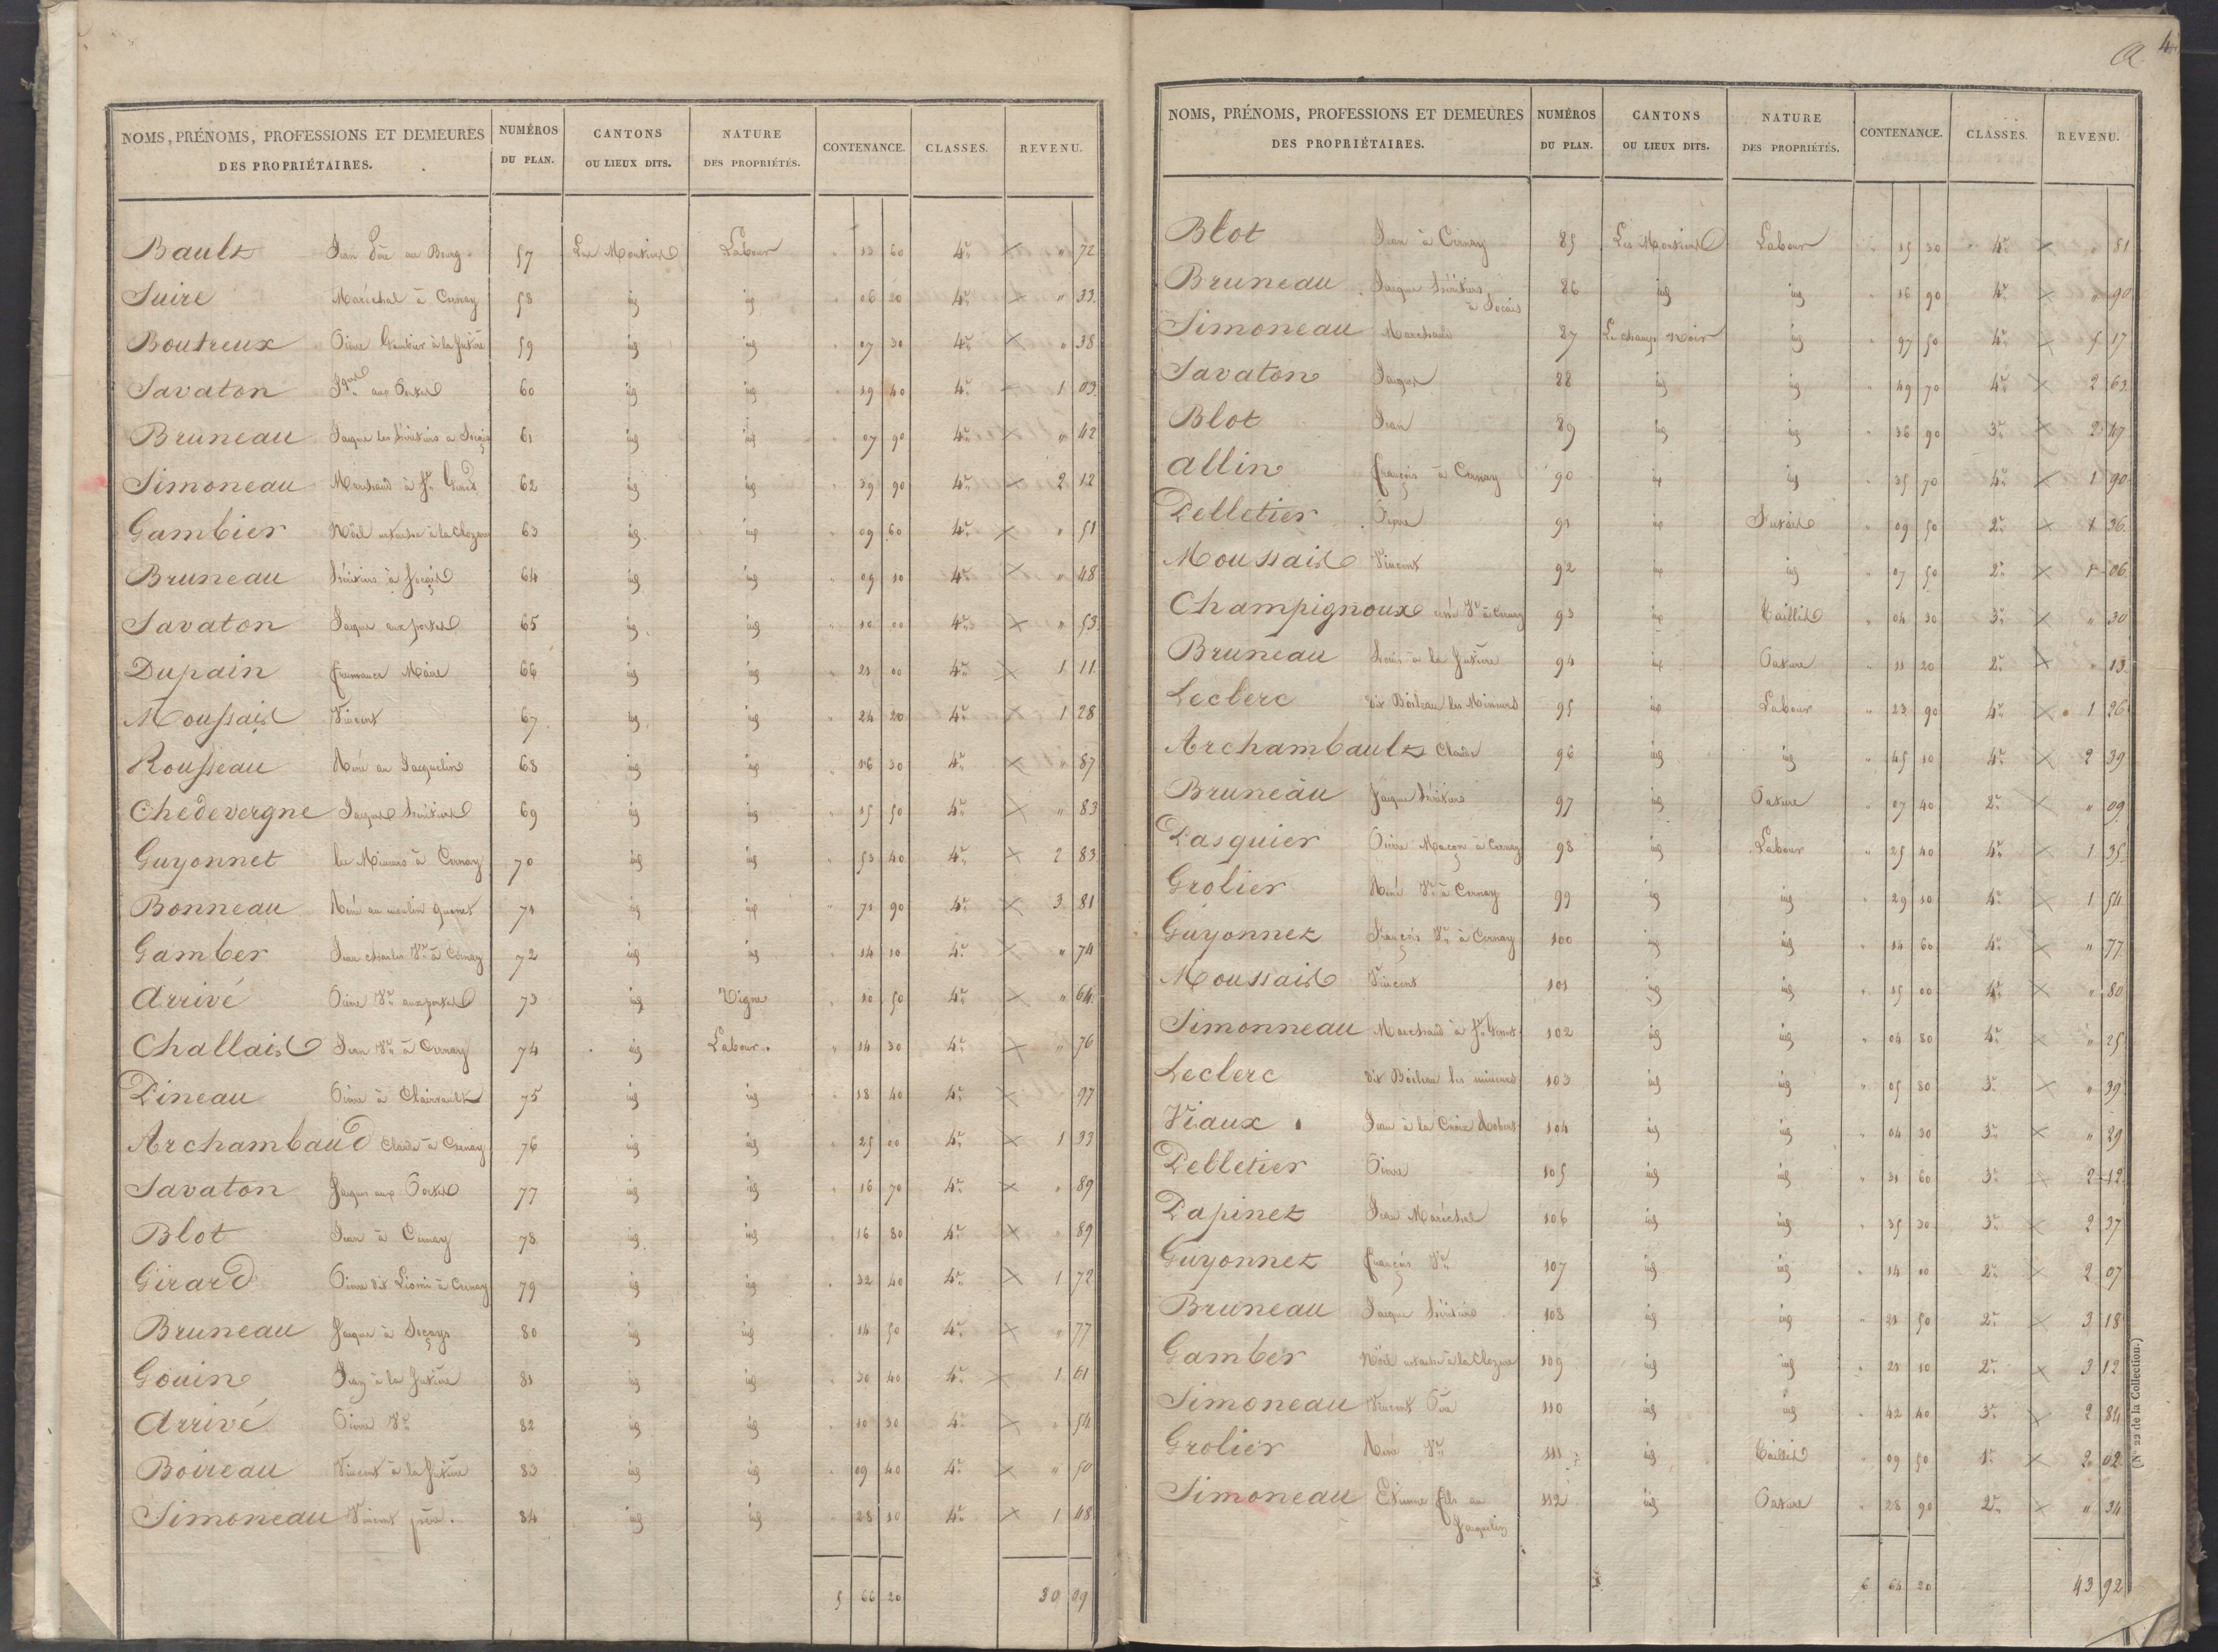 NOMS, PRÉNOMS, PROFESSIONS ET DEMEURES DES PROPRIÉTAIRES. NUMÉROS DU PLAN. CANTONS OU LIEUX DITS. NATURE DES PROPRIÉTÉS. CONTENANCE. CLASSES. REVENU.
Bault Jean Père au Bourg 57 Les Moutiers Labour " 13 60 4e × " 72
Suire Maréchal à Cernay 58 id id " 06 20 4e × " 33
Boutreux Pierre à la 59 id id " 07 30 4e × " 38
Savaton Jques aux Portes 60 id id " 19 40 4e × 1 03
Bruneau Jaque les héritiers a 61 id id " 07 90 4e × " 42
Simoneau Marchand à St Genest 62 id id " 39 90 4e × 2 12
Gambier Noël à la 63 id id " 09 60 4e × " 51
Bruneau héritiers à 64 id id " 09 10 4e × " 48
Savaton Jaque aux portes 65 id id " 10 00 4e × " 53
Dupain Maire 66 id id " 21 00 4e × 1 11
Moussais Vincent 67 id id " 24 20 4e × 1 28
Rousseau René au Jacquelin 68 id id " 16 30 4e × " 87
Chedevergne Jaques héritiers 69 id id " 15 50 4e × " 83
Guyonnet les Mineurs à Cernay 70 id id " 53 40 4e × 2 83
Bonneau René au moulin 71 id id " 71 90 4e × 3 81
Gamber Jean charles Ve à Cernay 72 id id " 14 10 4e × " 74
Arrivé Pierre Ve aux portes 73 id Vigne " 10 50 4e × " 64
Challais Jean Ve à Cernay 74 id Labour " 14 30 4e × " 76
Pineau Pierre à Clairvault 75 id id " 18 40 4e × " 97
Archambaud Claude à Cernay 76 id id " 25 00 4e × 1 33
Savaton Jaques aux Portes 77 id id " 16 70 4e × " 89
Blot Jean à Cernay 78 id id " 16 80 4e × " 89
Girard Pierre dit à Cernay 79 id id " 32 40 4e × 1 72
Bruneau Jaque à 80 id id " 14 50 4e × " 77
Gouin à la 81 id id " 30 40 4e × 1 61
Arrivé Pierre Ve 82 id id " 10 30 4e × " 54
Boireau Vincent à la 83 id id " 09 40 4e × " 50
Simoneau Vincent père 84 id id " 28 10 4e × 1 48
5 66 20 30 09
4
NOMS, PRÉNOMS, PROFESSIONS ET DEMEURES DES PROPRIÉTAIRES. NUMÉROS DU PLAN. CANTONS OU LIEUX DITS. NATURE DES PROPRIÉTÉS. CONTENANCE. CLASSES. REVENU.
Blot Jean à Cernay 85 Les Moutiers Labour " 15 30 4e × " 81
Bruneau Jaque héritiers 86 id id " 16 90 4e × " 90
Simoneau Marchand 87 Le champ noir id " 97 50 4e × 5 17
Savaton Jaques 88 id id " 49 70 4e × 2 63
Blot Jean 89 id id " 36 90 3e × 2 47
Allin françois à Cernay 90 id id " 35 70 4e × 1 90
Pelletier Pierre 91 id " 09 50 2e × 1 36
Moussais Vincent 92 id id " 07 50 2e × 1 06
Champignoux Ve à Cernay 93 id Taillis " 04 30 3e × " 30
Bruneau Louis à la 94 id Pature " 11 20 2e × " 13
Leclerc dit Boileau les Mineurs 95 id Labour " 23 90 4e × 1 26
Archambault Claude 96 id id " 45 10 4e × 2 39
Bruneau Jaque héritiers 97 id Pature " 07 40 2e × " 09
Pasquier Pierre Maçon à Cernay 98 id Labour " 25 40 4e × 1 35
Grolier René Ve à Cernay 99 id id " 29 10 4e × 1 54
Guyonnet François Ve à Cernay 100 id id " 14 60 4e × " 77
Moussais Vincent 101 id id " 15 00 4e × " 80
Simonneau Marchand à St Genest 102 id id " 04 80 4e × " 25
Leclerc dit Boileau les mineurs 103 id id " 05 80 3e × " 39
Viaux Jean à la Croix Robert 104 id id " 04 30 3e × " 29
Pelletier Pierre 105 id id " 31 60 3e × 2 12
Papinet Jean Maréchal 106 id id " 35 30 3e × 2 37
Guyonnet françois Ve 107 id id " 14 00 2e × 2 07
Bruneau Jaque héritiers 108 id id " 21 50 2e × 3 18
Gamber Noël à la 109 id id " 21 10 2e × 3 12
Simoneau Vincent 110 id id " 42 40 3e × 2 84
Grolier René Ve 111 id Taillis " 09 50 1e × 2 02
Simoneau Etienne fils au 112 id Pature " 28 90 2e × " 34
Jaquelin
6 64 20 43 92
(N° 22 de la Collection.)